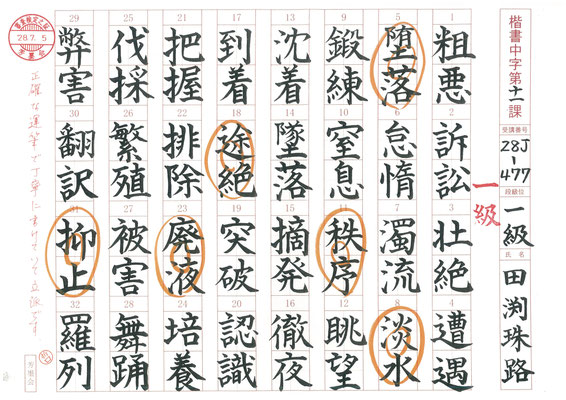 楷書中字第十一課
受講番号
28J-477
段級位
一級
氏名
田渕珠路
一級
1 粗悪
2 訴訟
3 壮絶
4 遭遇
5 堕落
6 怠惰
7 濁流
8 淡水
9 鍛練
10 窒息
11 秩序
12 眺望
13 沈着
14 墜落
15 摘発
16 徹夜
17 到着
18 途絶
19 突破
20 認識
21 把握
22 排除
23 廃液
24 培養
25 伐採
26 繁殖
27 被害
28 舞踊
29 弊害
30 翻訳
31 抑止
32 羅列
28.7.5
正確な運筆で丁寧に書けていて立派です